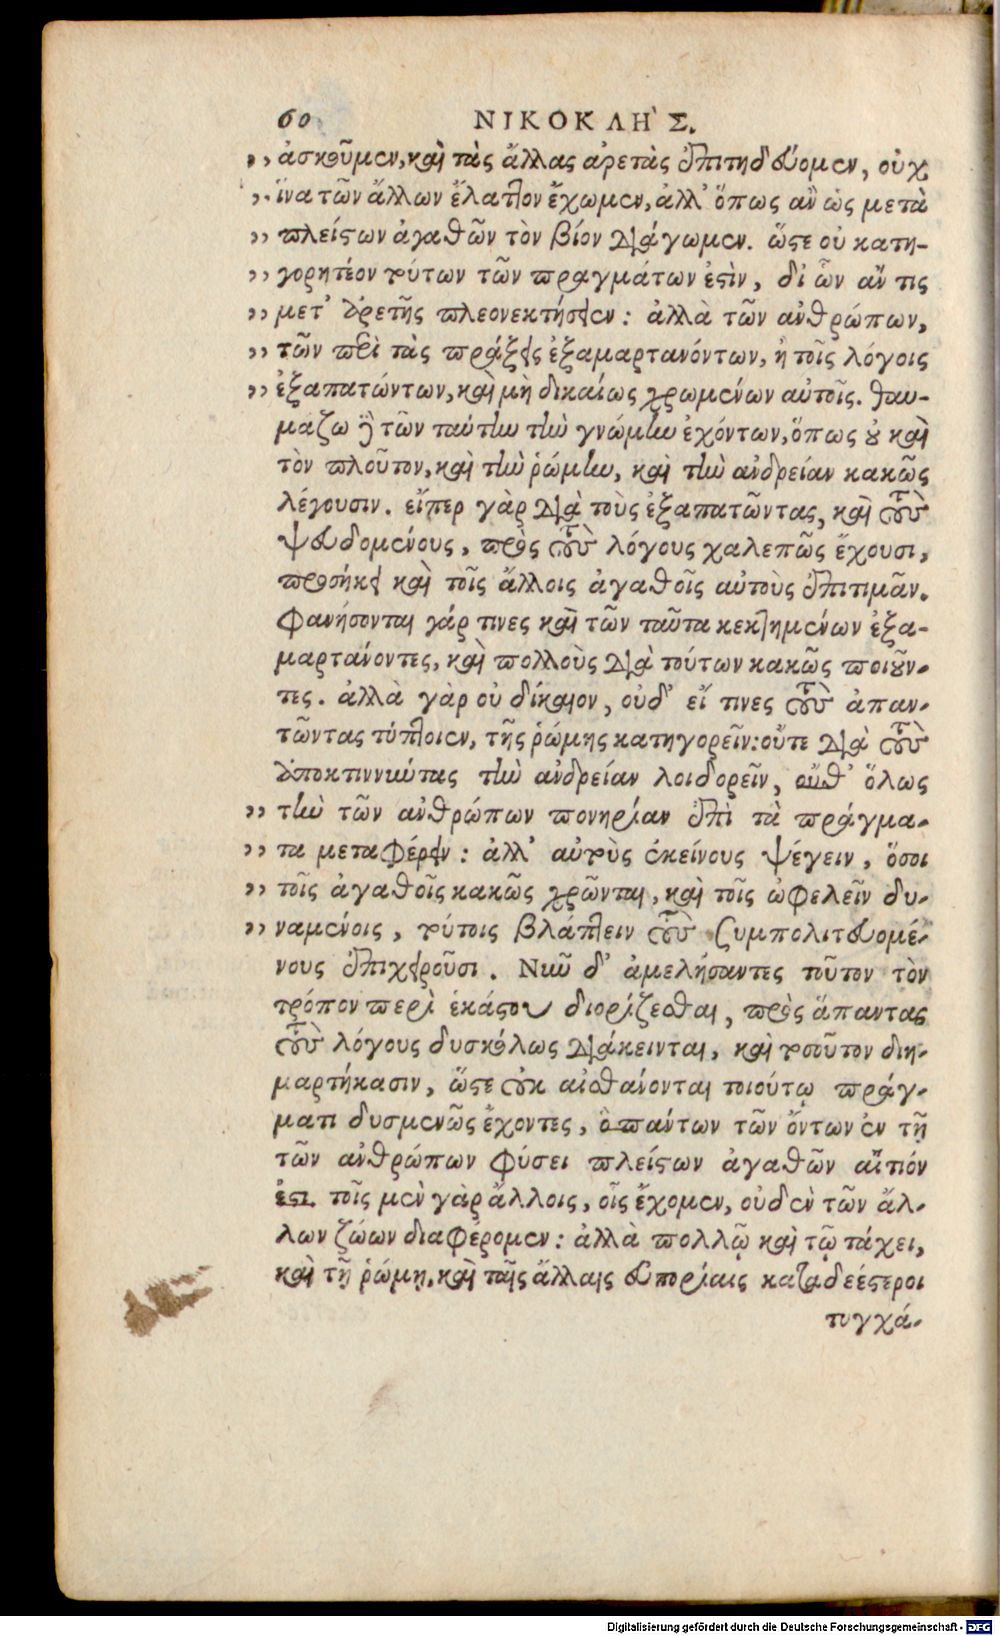 60 ΝΙΚΟΚΛΗ῀Σ.
,, ἀσκοῦμεν, καὶ τὰς ἄλλας ἀρετὰς ἐπιτηδεύομεν, οὐχ
,, ἵνα τῶν ἄλλων ἔλαττον ἔχωμεν, ἀλλ' ὅπως ἂν ὡς μετὰ
,, πλείστων ἀγαθῶν τὸν βίον διάγωμεν. ὥστε οὐ κατη-
,, γορητέον τούτων τῶν πραγμάτων ἐστὶν, δι' ὧν ἄν τις
,, μετ' ἀρετῆς πλεονεκτήσειεν: ἀλλὰ τῶν ἀνθρώπων,
,, τῶν περὶ τὰς πράξεις ἐξαμαρτανόντων, ἢ τοῖς λόγοις
,, ἐξαπατώντων, καὶ μὴ δικαίως χρωμένων αὐτοῖς. θαυ-
μάζω δὲ τῶν ταύτην τὴν γνώμην ἐχόντων, ὅπως οὐ καὶ
τὸν πλοῦτον, καὶ τὴν ῥώμην, καὶ τὴν ἀνδρείαν κακῶς
λέγουσιν. εἴπερ γὰρ διὰ τοὺς ἐξαπατῶντας, καὶ τοὺς
ψευδομένους, πρὸς τοὺς λόγους χαλεπῶς ἔχουσι,
προσήκει καὶ τοῖς ἄλλοις ἀγαθοῖς αὐτοὺς ἐπιτιμᾶν.
Φανήσονται γάρ τινες καὶ τῶν ταῦτα κεκτημένων ἐξα-
μαρτάνοντες, καὶ πολλοὺς διὰ τούτων κακῶς ποιοῦν-
τες. ἀλλὰ γὰρ οὐ δίκαιον, οὐδ' εἴ τινες τοὺς ἀπαν-
τῶντας τύπτοιεν, τῆς ῥώμης κατηγορεῖν: οὔτε διὰ τοὺς
ἀποκτιννύντας τὴν ἀνδρείαν λοιδορεῖν, οὔθ' ὅλως
,, τὴν τῶν ἀνθρώπων πονηρίαν ἐπὶ τὰ πράγμα-
,, τα μεταφέρειν: ἀλλ' αὐτοὺς ἐκείνους ψέγειν, ὅσοι
,, τοῖς ἀγαθοῖς κακῶς χρῶνται, καὶ τοῖς ὠφελεῖν δυ-
,, ναμένοις, τούτοις βλάπτειν τοὺς ξυμπολιτευομέ-
νους ἐπιχειροῦσι. Νῦν δ' ἀμελήσαντες τοῦτον τὸν
τρόπον περὶ ἑκάστου διορίζεσθαι, πρὸς ἅπαντας
τοὺς λόγους δυσκόλως διάκεινται, καὶ τοσοῦτον διη-
μαρτήκασιν, ὥστε οὐκ αἰσθάνονται τοιούτῳ πράγ-
ματι δυσμενῶς ἔχοντες, ὃ πάντων τῶν ὄντων ἐν τῇ
τῶν ἀνθρώπων φύσει πλείστων ἀγαθῶν αἴτιόν
ἐστι. τοῖς μὲν γὰρ ἄλλοις, οἷς ἔχομεν, οὐδὲν τῶν ἄλ-
λων ζώων διαφέρομεν: ἀλλὰ πολλῷ καὶ τῷ τάχει,
καὶ τῇ ῥώμῃ, καὶ ταῖς ἄλλαις εὐπορίαις καταδεέστεροι
τυγχά-
Digitalisierung gefördert durch die Deutsche Forschungsgemeinschaft - DFG